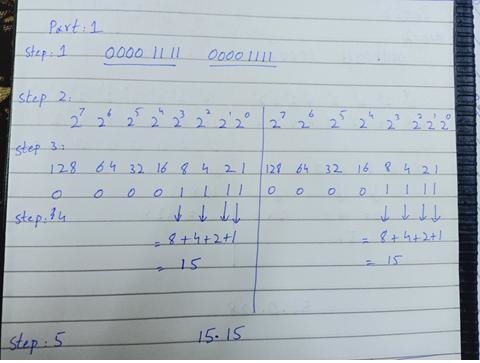 Part: 1
Step: 1 0000 1111 0000 1111
Step 2:
2⁷ 2⁶ 2⁵ 2⁴ 2³ 2² 2¹ 2⁰ 2⁷ 2⁶ 2⁵ 2⁴ 2³ 2² 2¹ 2⁰
Step 3:
128 64 32 16 8 4 2 1 128 64 32 16 8 4 2 1
0 0 0 0 1 1 1 1 0 0 0 0 1 1 1 1
Step: 4 ↓ ↓ ↓ ↓ ↓ ↓ ↓ ↓
= 8+4+2+1 = 8+4+2+1
= 15 = 15
Step: 5 15.15